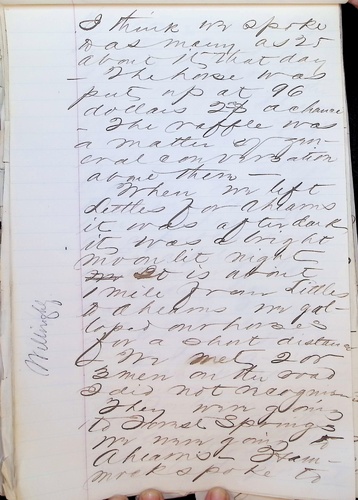 I think we spoke
to as many as 25
about it that day
- The horse was
put up at 96
dollars a chance
- The raffle was
a matter of gen-
eral conversation
among them -
When we left
Littles for Ahearns
it was after dark
it was a bright
moon lit night
It is about
1 mile from Littles
to Ahearns we gal-
loped our horses
for a short distance
- We met 2 or
3 men on the road
I did not recognize
They were going
to Forest Springs
we were going to
Ahearns - Ham-
mock spoke to
Willingly